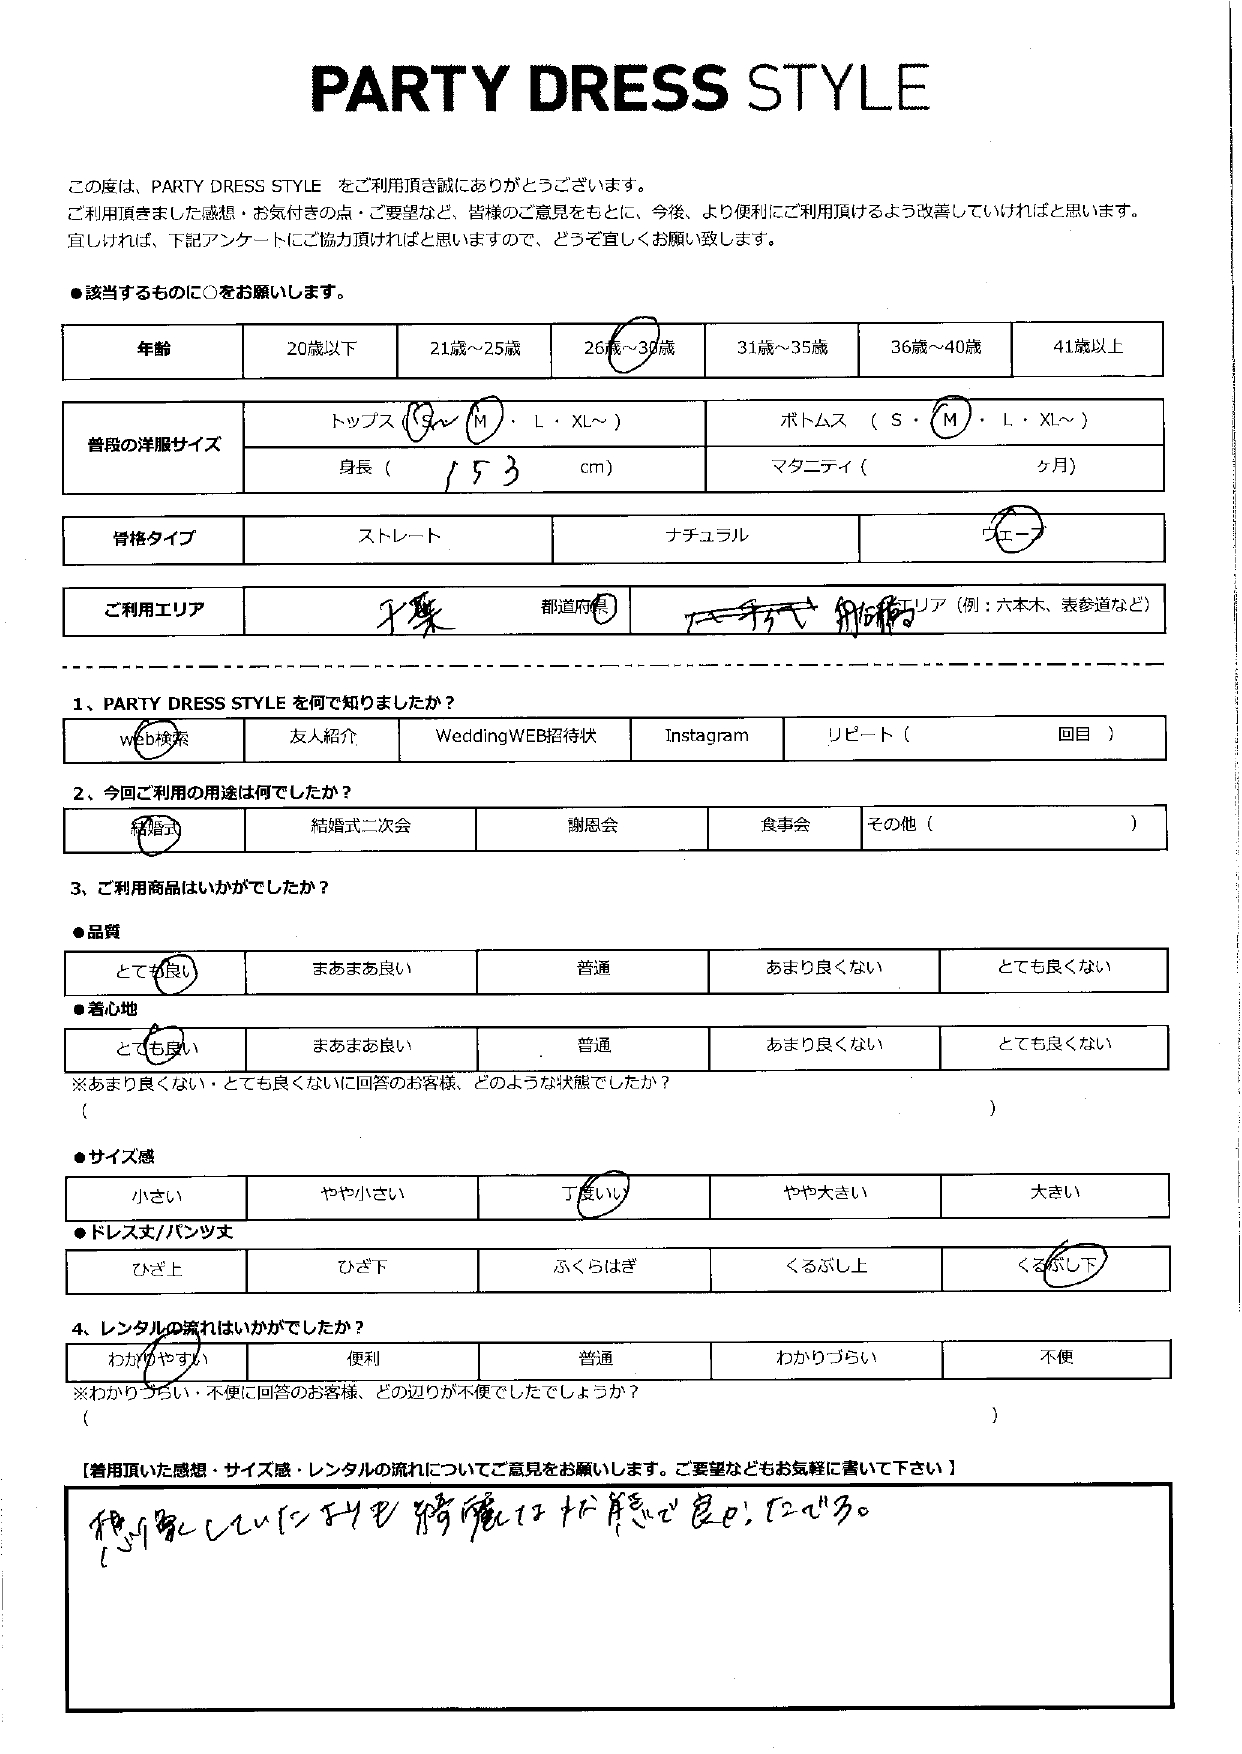 PARTY DRESS STYLE
この度は、PARTY DRESS STYLE をご利用頂き誠にありがとうございます。
ご利用頂きました感想・お気付きの点・ご要望など、皆様のご意見をもとに、今後、より便利にご利用頂けるよう改善していければと思います。
宜しければ、下記アンケートにご協力頂ければと思いますので、どうぞ宜しくお願い致します。
●該当するものに○をお願いします。
年齢 20歳以下 21歳～25歳 26歳～30歳 31歳～35歳 36歳～40歳 41歳以上
普段の洋服サイズ トップス ( S ～ M ・ L ・ XL～ ) ボトムス ( S ・ M ・ L ・ XL～ )
身長 ( 153 cm) マタニティ ( ヶ月)
骨格タイプ ストレート ナチュラル ウェーブ
ご利用エリア 千葉 都道府県 船橋 エリア (例：六本木、表参道など)
1、PARTY DRESS STYLE を何で知りましたか？
web検索 友人紹介 WeddingWEB招待状 Instagram リピート ( 回目 )
2、今回ご利用の用途は何でしたか？
結婚式 結婚式二次会 謝恩会 食事会 その他 ( )
3、ご利用商品はいかがでしたか？
●品質
とても良い まあまあ良い 普通 あまり良くない とても良くない
●着心地
とても良い まあまあ良い 普通 あまり良くない とても良くない
※あまり良くない・とても良くないに回答のお客様、どのような状態でしたか？
( )
●サイズ感
小さい やや小さい 丁度いい やや大きい 大きい
●ドレス丈/パンツ丈
ひざ上 ひざ下 ふくらはぎ くるぶし上 くるぶし下
4、レンタルの流れはいかがでしたか？
わかりやすい 便利 普通 わかりづらい 不便
※わかりづらい・不便に回答のお客様、どの辺りが不便でしたでしょうか？
( )
【着用頂いた感想・サイズ感・レンタルの流れについてご意見をお願いします。ご要望などもお気軽に書いて下さい】
想像していたよりも綺麗な状態で良かったです。